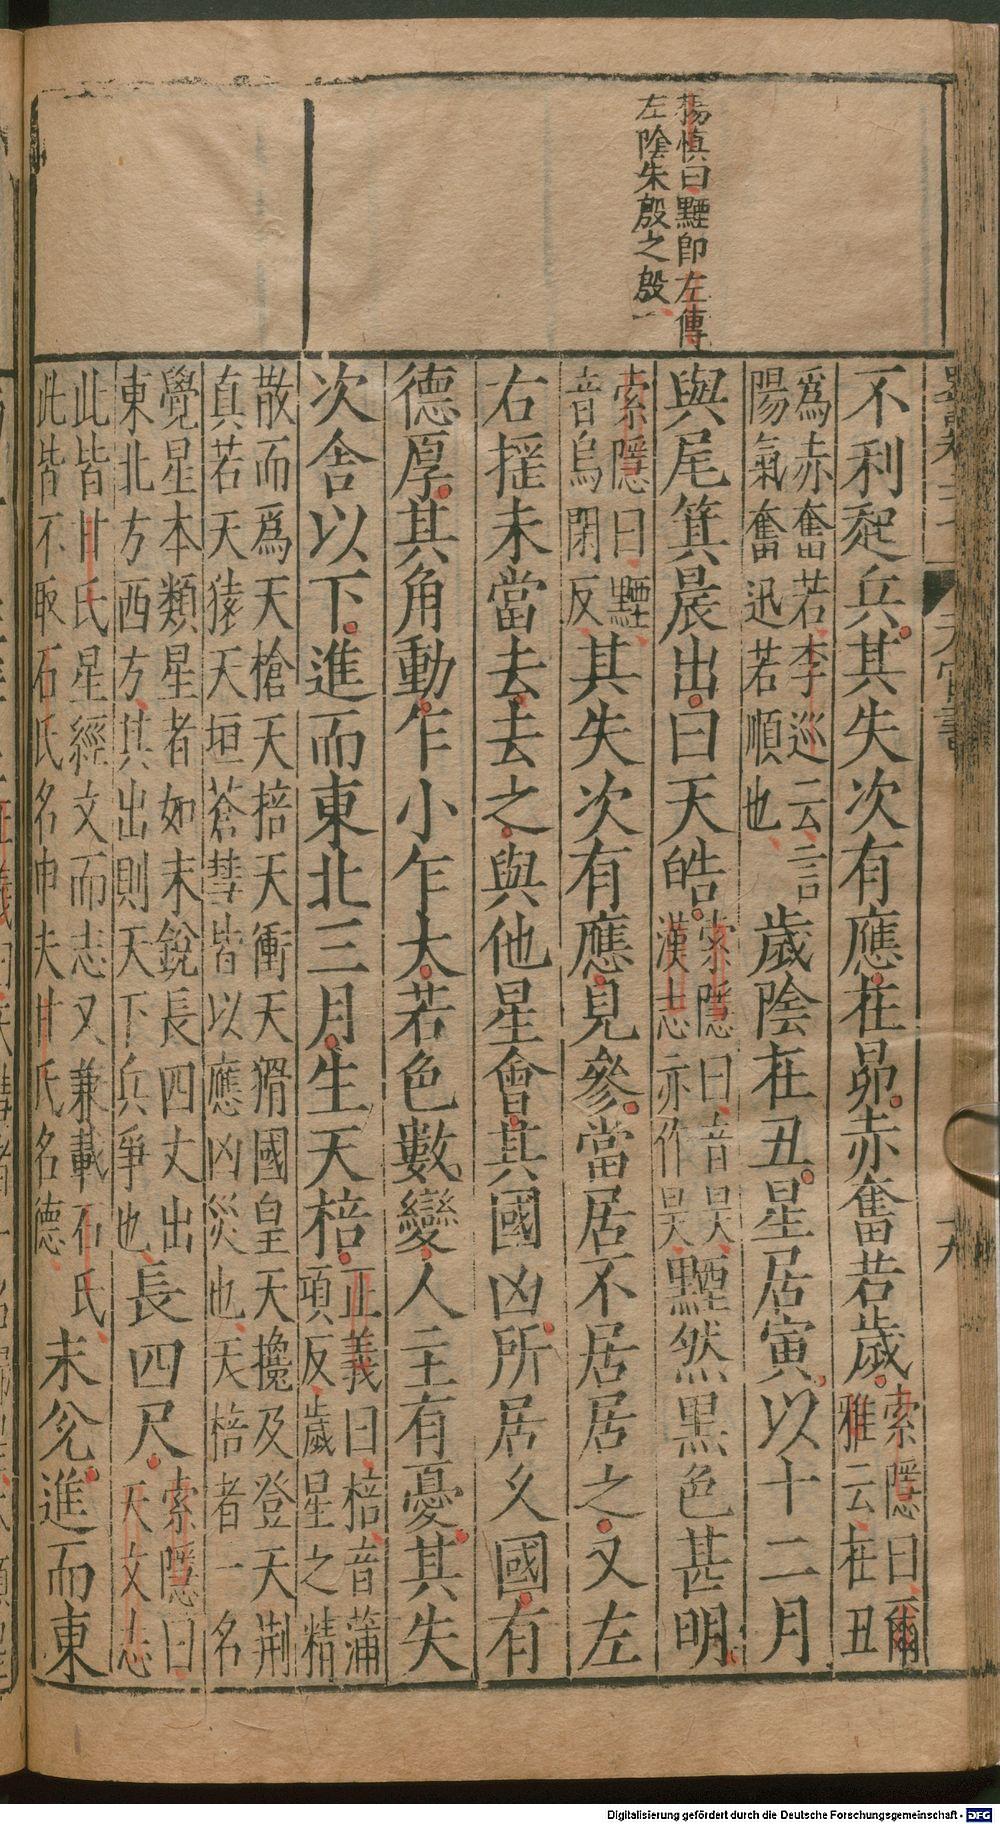 楊慎曰黫即左傳
左陰朱殷之殷
不利起兵其失次有應在昴赤奮若歲索隱曰爾雅云在丑
爲赤奮若李巡云言陽氣奮迅若順也歲陰在丑星居寅以十二月
與尾箕晨出曰天皓索隱曰音昊漢志亦作昊黫然黑色甚明
索隱曰黫音烏閑反其失次有應見參當居不居居之又左
右搖未當去去之與他星會其國凶所居久國有
德厚其角動乍小乍大若色數變人主有憂其失
次舍以下進而東北三月生天棓正義曰棓音蒲項反歲星之精
散而爲天槍天棓天衝天猾國皇天攙及登天荆真若天猿天垣蒼彗皆以應凶災也天棓者一名
覺星本類星者如末銳長四丈出東北方西方其出則天下兵爭也長四尺索隱曰天文志
此皆甘氏星經文而志又兼載石氏此皆不取石氏名申夫甘氏名德末兊進而東
天官書
十九
Digitalisierung gefördert durch die Deutsche Forschungsgemeinschaft - DFG